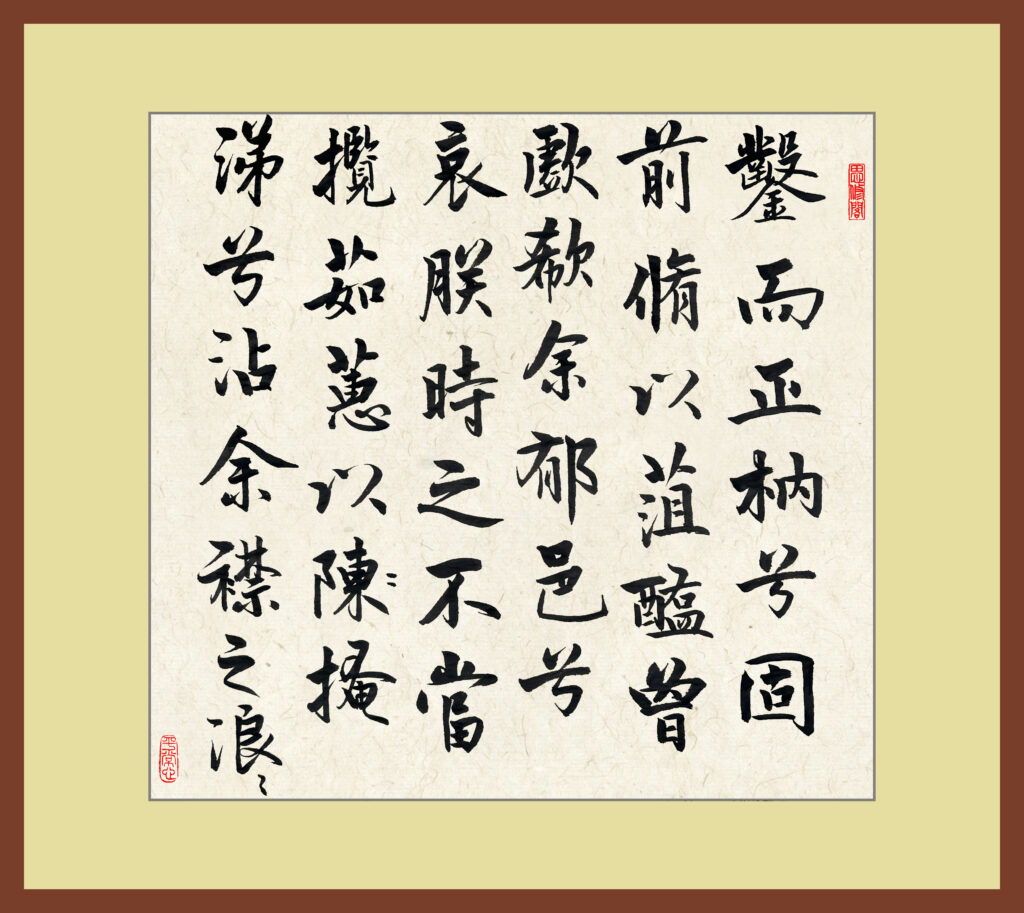 思修閣
鑿而正枘兮固
前脩以菹醢曾
歔欷余郁邑兮
哀朕時之不當
攬茹蕙以陳掩
涕兮沾余襟之浪〻
平常心